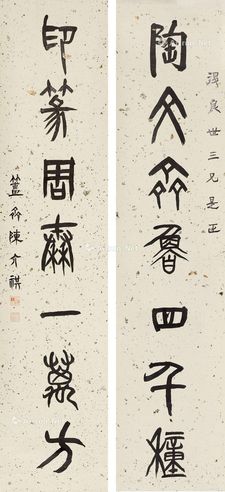 陶文齊魯四千種
得良世三兄是正
印篆周秦一萬方
簠齋陳介祺